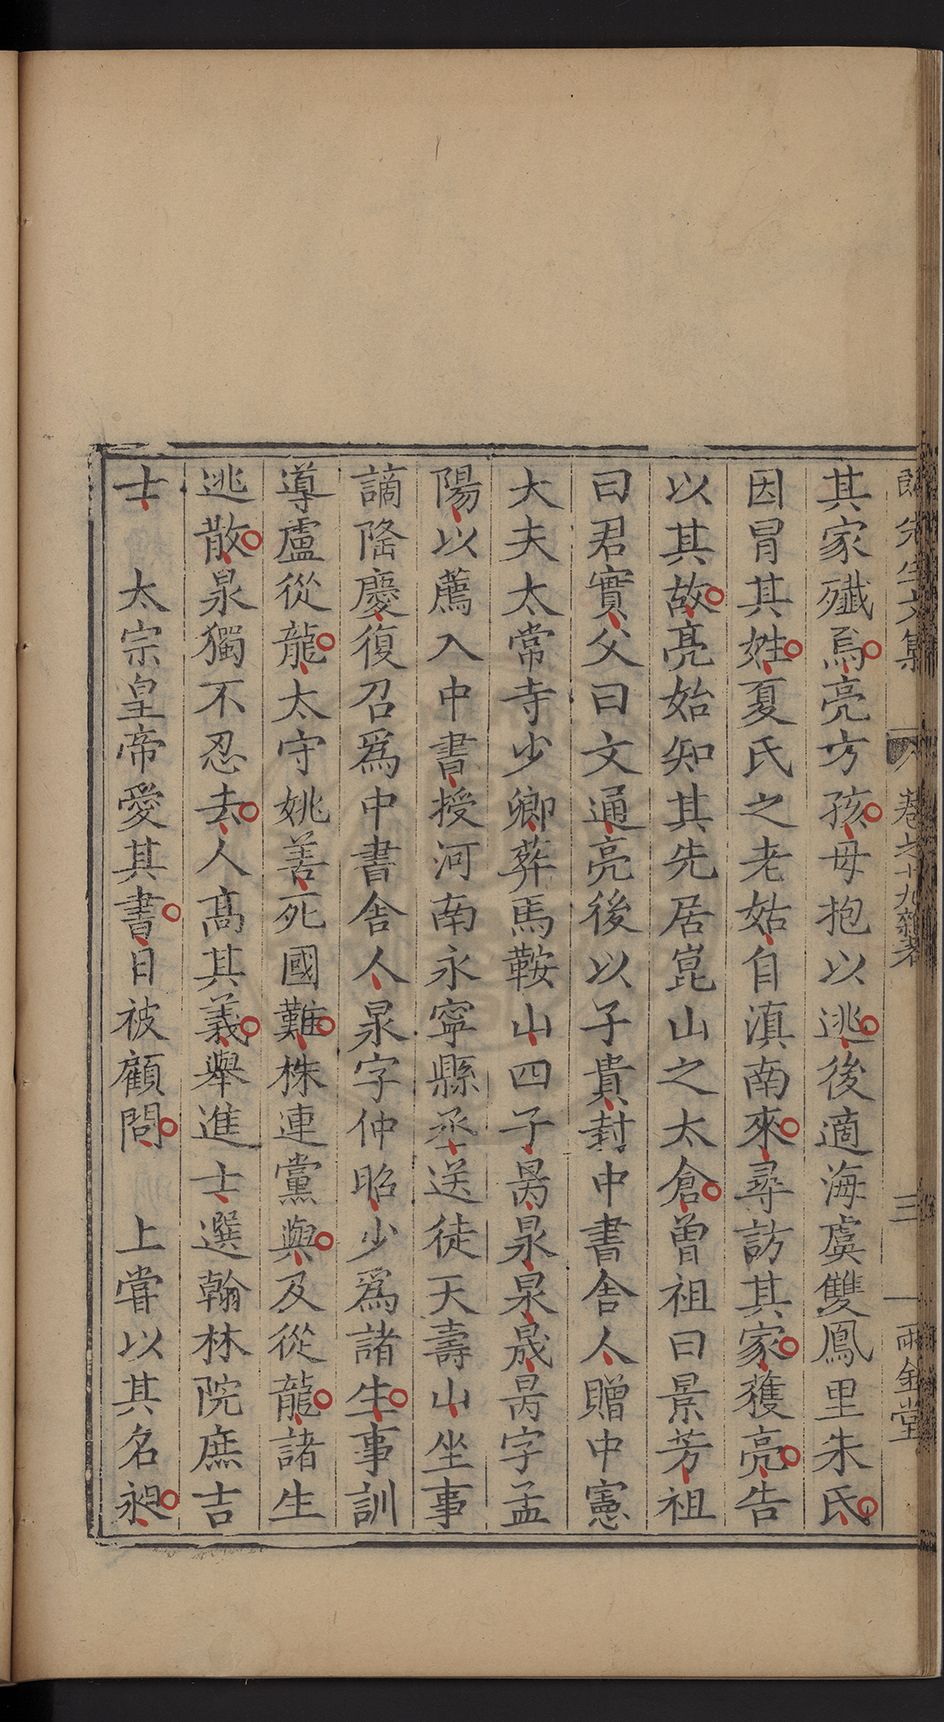 先生文集 卷之十九雜著 三 雨金堂
其家殱焉亮方孩母抱以逃後適海虞雙鳳里朱氏
因冒其姓夏氏之老姑自滇南來尋訪其家獲亮告
以其故亮始知其先居崑山之太倉曾祖曰景芳祖
曰君實父曰文通亮後以子貴封中書舍人贈中憲
大夫太常寺少卿葬馬鞍山四子昺泉杲晟昺字孟
陽以薦入中書授河南永寧縣丞送徒天壽山坐事
謫隆慶復召爲中書舍人泉字仲昭少爲諸生事訓
導盧從龍太守姚善死國難株連黨與及從龍諸生
逃散泉獨不忍去人高其義舉進士選翰林院庶吉
士 太宗皇帝愛其書日被顧問 上嘗以其名昶